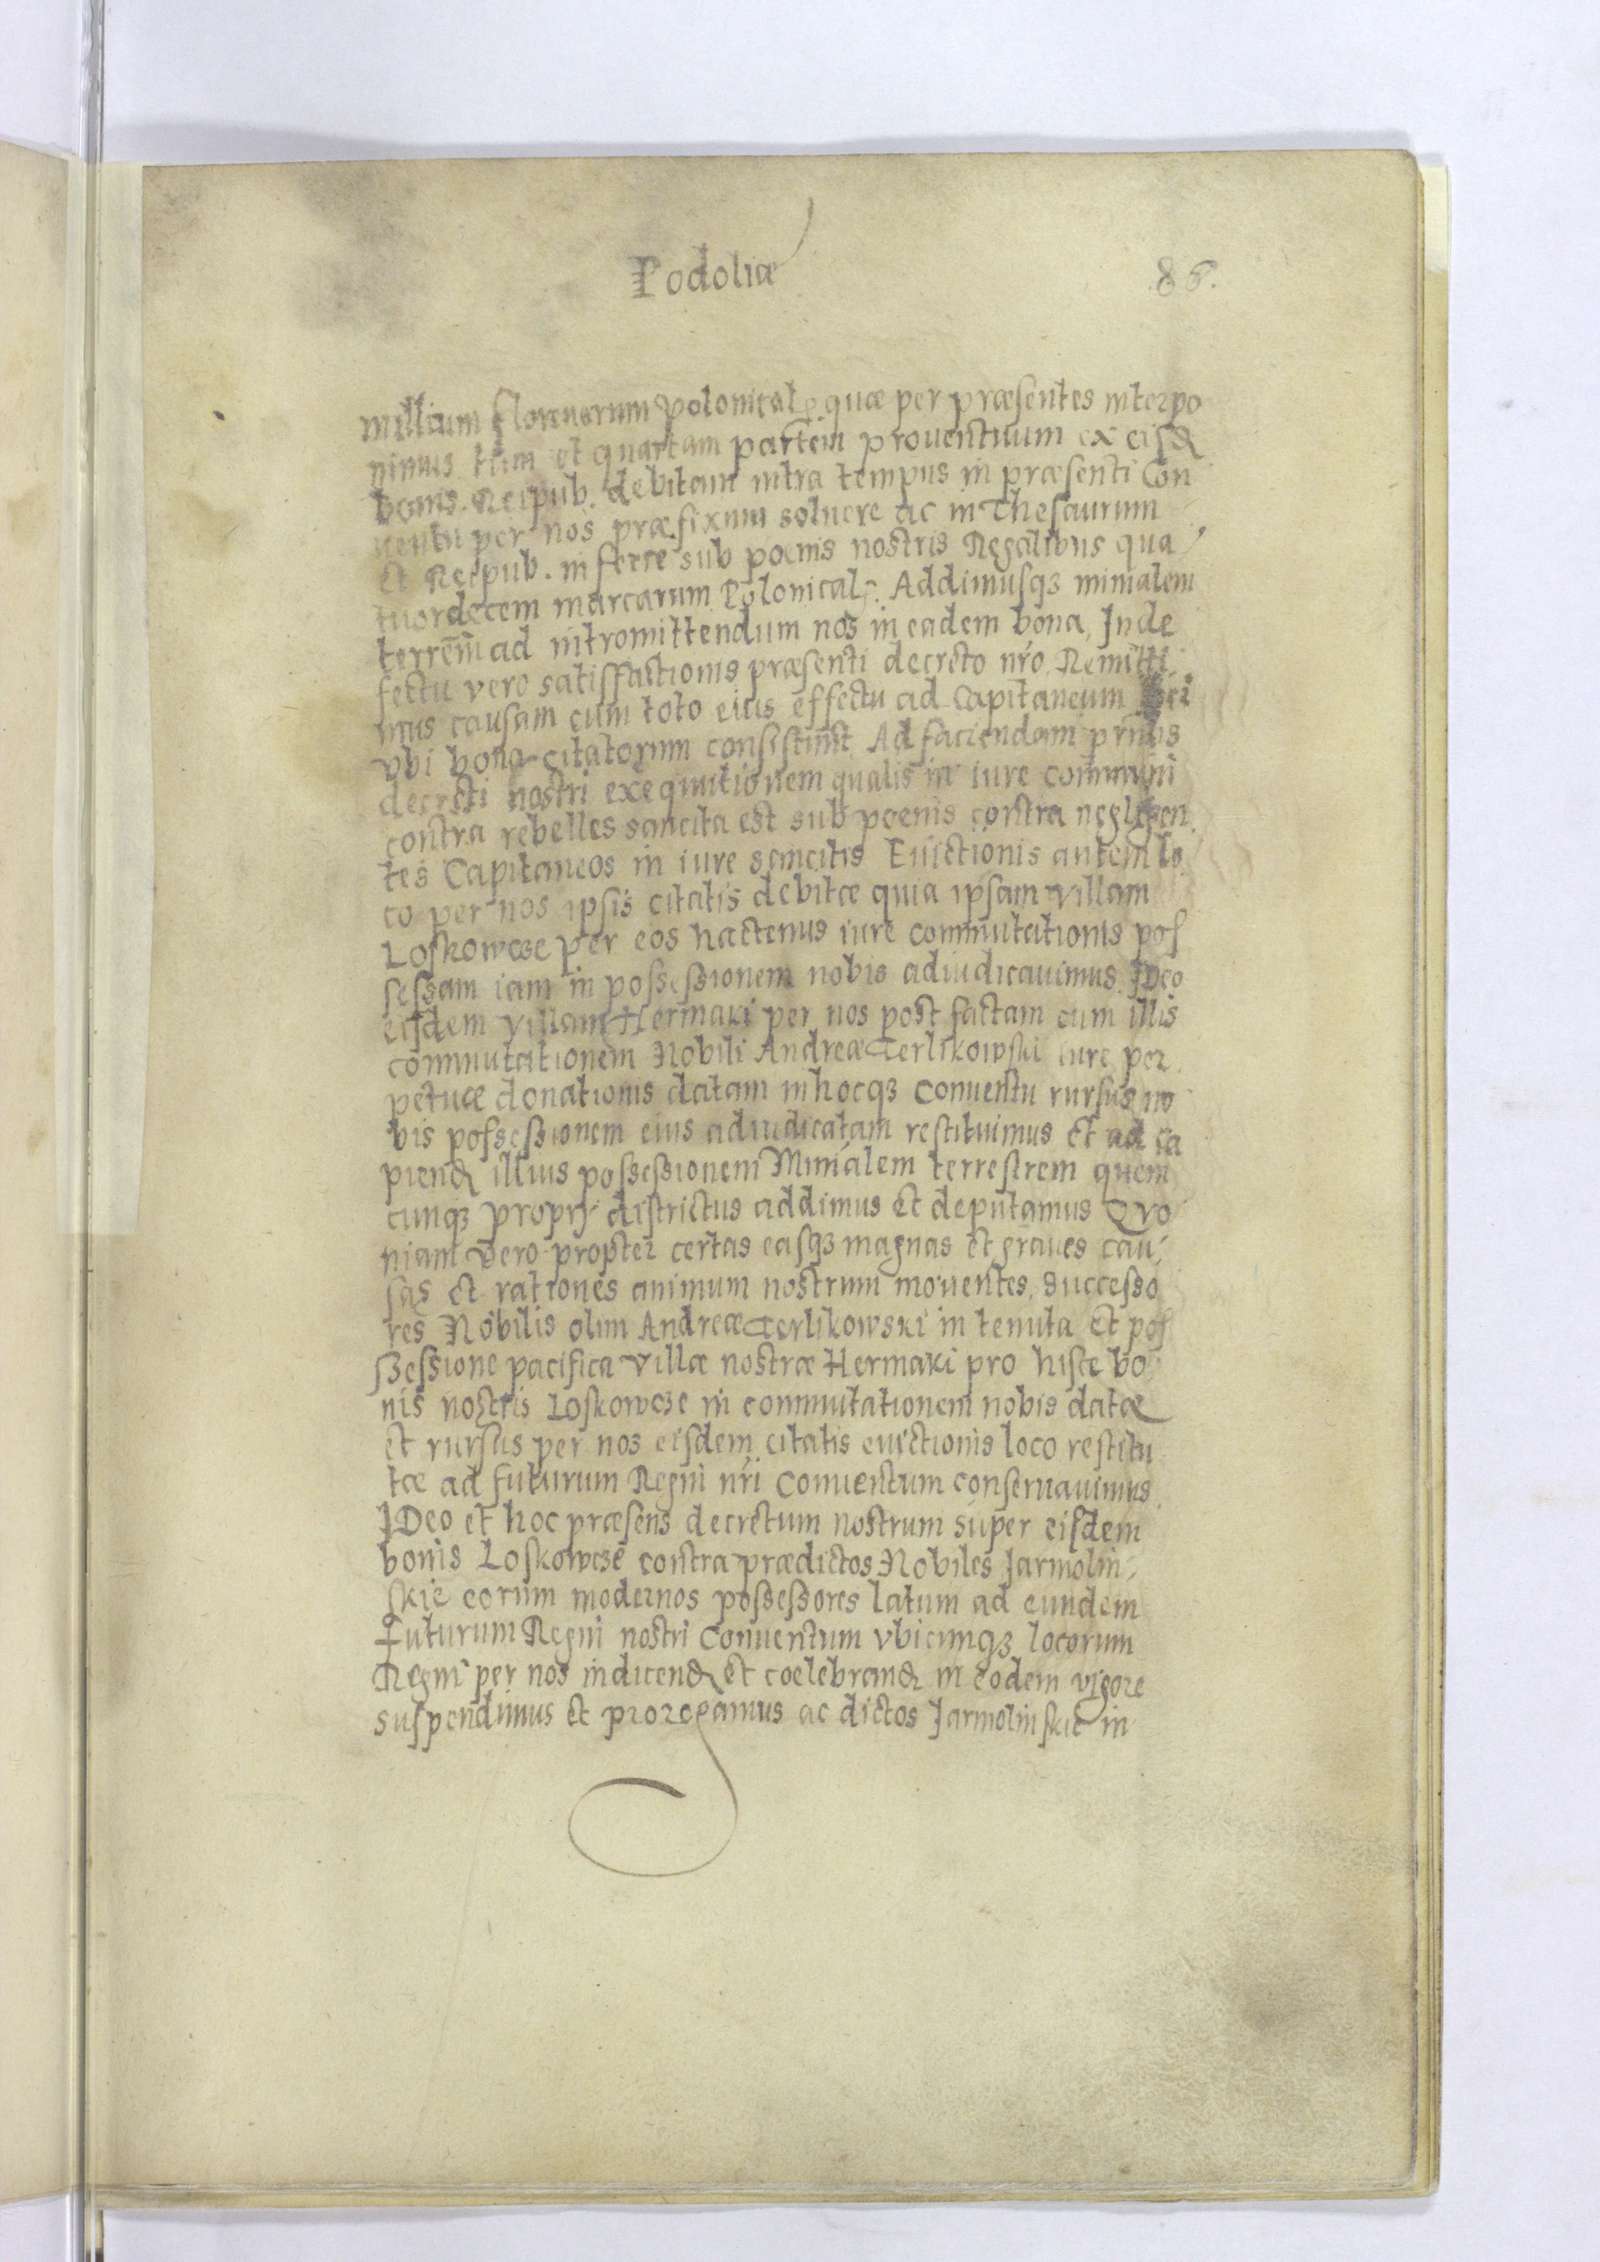 Podoliæ
86.
millium florenorum Polonical quæ per præsentes interpo
nimus tum et quartam partem prouentuum ex eisd
bonis Reipub. debitam intra tempus in præsenti Con
uentu per nos præfixum soluere ac in Thesaurum
et Reipub. inferre sub poenis nostris Regalibus qua
tuordecem marcarum Polonical. Addimusq3 minialem
terrem ad intromittendum nos in eadem bona, Inde
fectu vero satisfactionis præsenti decreto nro Remitti
mus causam cum toto eius effectu ad Capitaneum
vbi bona citatorum consistunt Ad faciendam pntis
decreti nostri exequutionem qualis in iure communi
contra rebelles sancita est sub poenis contra negligen
tes Capitaneos in iure sancitis Euictionis autem lo
co per nos ipsis citatis debitæ quia ipsam villam
Loskowcze per eos hactenus iure commutationis pos
sessam iam in possessionem nobis adiudicauimus. IDeo
eisdem villam Hermaki per nos post factam cum illis
commutationem Nobili Andreæ Cerlikowski iure per
petuæ donationis datam inhocq3 Conuentu rursus no
bis possessionem eius adiudicatam restituimus et ad ca
piend illius possessionem Minialem terrestrem quem
cunq3 proprij districtus addimus et deputamus Quo
niam vero propter certas easq3 magnas et graues cau
sas et rationes animum nostrum mouentes, successo
res Nobilis olim Andreæ Cerlikowski in tenuta et pos
sessione pacifica villæ nostræ Hermaki pro hisce bo
nis nostris Loskowcze in commutationem nobis datæ
et rursus per nos eisdem citatis euictionis loco restitu
tæ ad futurum Regni nri Conuentum conseruauimus
IDeo et hoc præsens decretum nostrum super eisdem
bonis Loskowcze contra prædictos Nobiles Jarmolin
skie eorum modernos possessores latum ad eundem
futurum Regni nostri Conuentum vbicunq3 locorum
Regni per nos indicend et coelebrand in eodem vigore
suspendimus et prorogamus ac dictos Jarmolinskie in